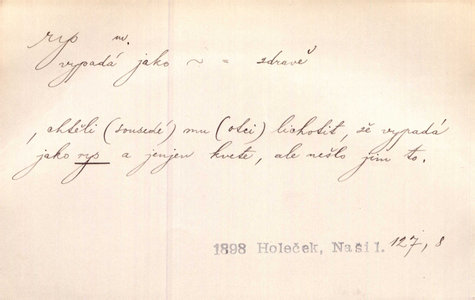 rys m.
vypadá jako ~ = zdravě
, chtěli (sousedé) mu (otci) lichotit, že vypadá
jako rys a jenjen kvete, ale nešlo jim to.
1898 Holeček, Naši 1. 127, 8